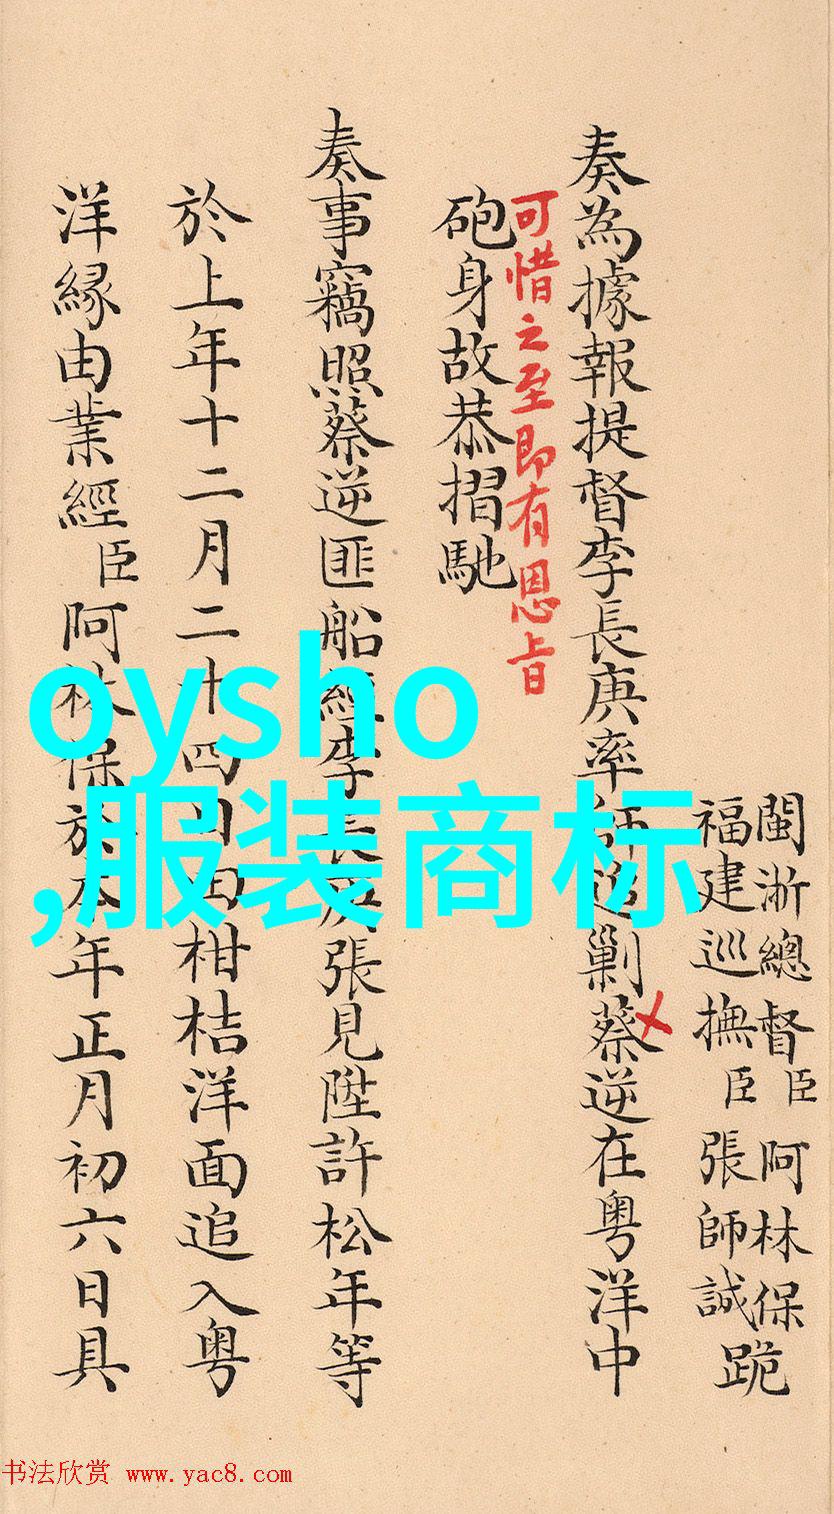 閩浙總督臣阿林保
福建巡撫臣張師誠
跪
奏為據報提督李長庚率師追剿蔡逆在粤洋中
可惜之至即有恩旨
砲身故恭摺馳
奏事竊照蔡逆匪船經李長庚張見陞許松年等
於上年十二月二十四日田柑桔洋面追入粤
洋縁由業經臣阿林保於本年正月初六日具
oysho
,服装商标
书法欣赏 www.yac8.com